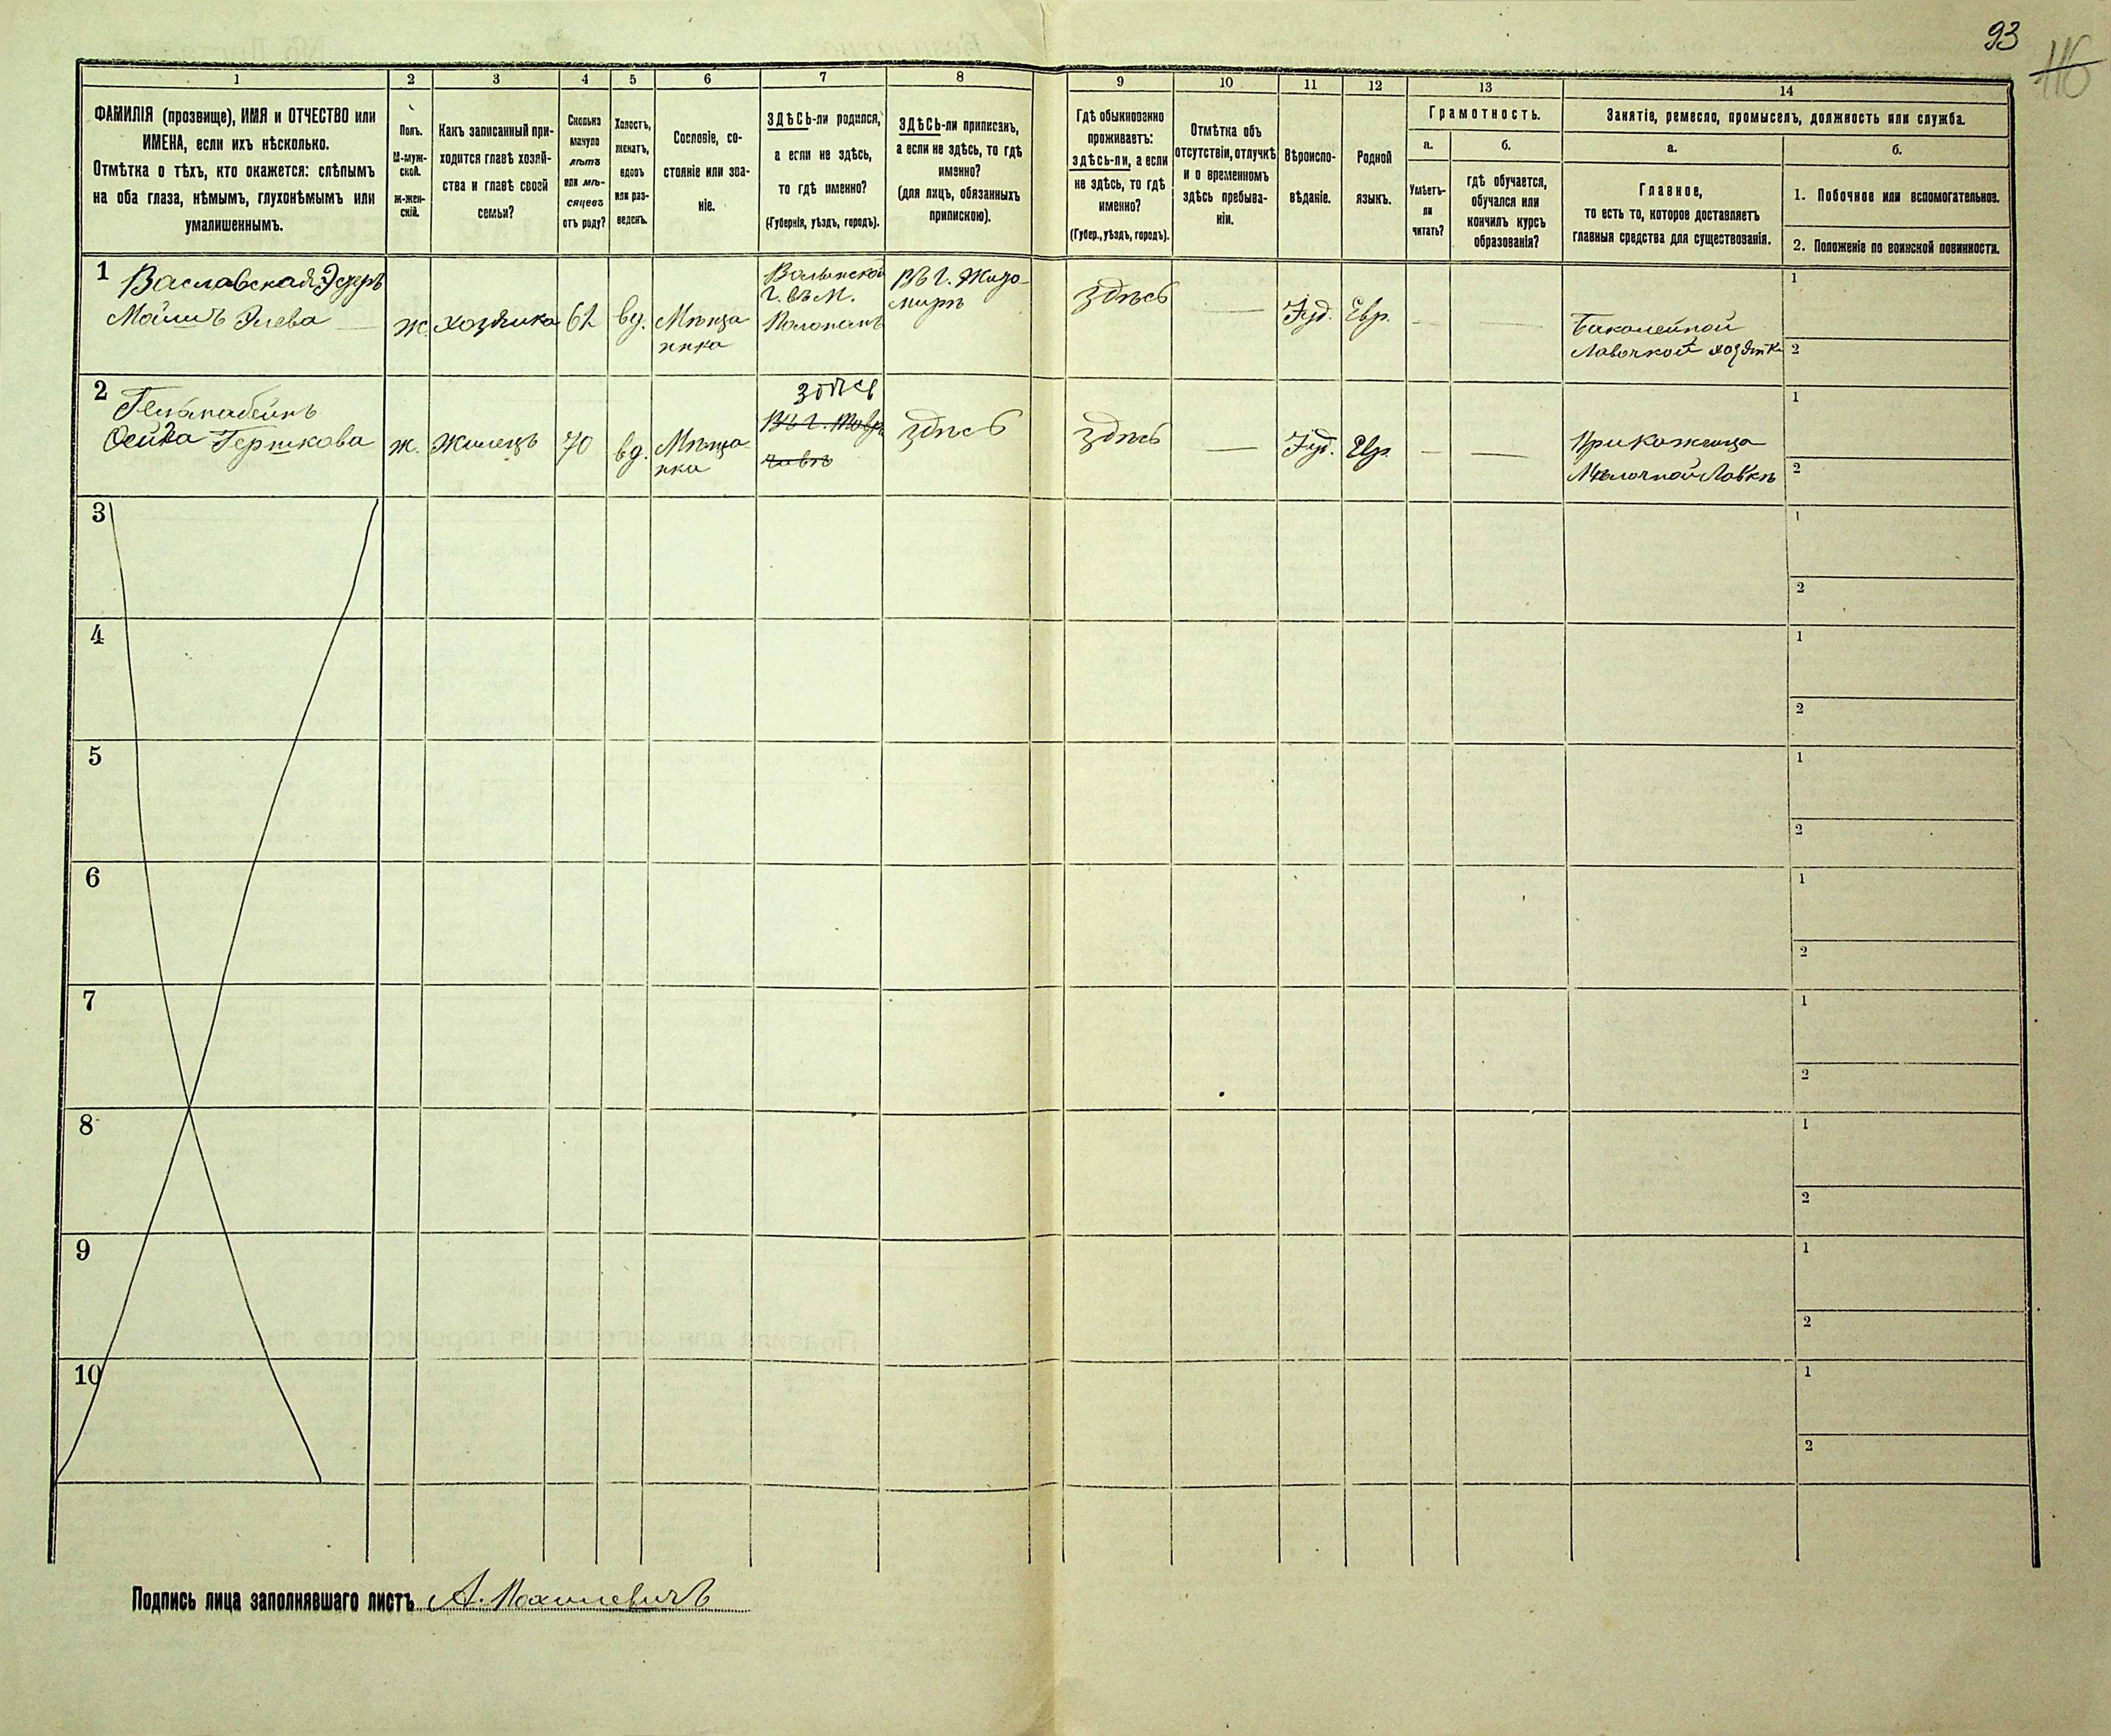 93
116
1
2
3
4
5
6
7
8
9
10
11
12
13
14
ФАМИЛІЯ (прозвище), ИМЯ и ОТЧЕСТВО или
ИМЕНА, если ихъ нѣсколько.
Отмѣтка о тѣхъ, кто окажется: слѣпымъ
на оба глаза, нѣмымъ, глухонѣмымъ или
умалишеннымъ.
Полъ.
М-муж-
ской.
Ж-жен-
скій.
Какъ записанный при-
ходится главѣ хозяй-
ства и главѣ своей
семьи?
Сколько
минуло
лѣтъ
или мѣ-
сяцевъ
отъ роду?
Холостъ,
женатъ,
вдовъ
или раз-
веденъ.
Сословіе, со-
стояніе или зва-
ніе.
ЗДѢСЬ-ли родился,
а если не здѣсь,
то гдѣ именно?
(Губернія, уѣздъ, городъ).
ЗДѢСЬ-ли приписанъ,
а если не здѣсь, то гдѣ
именно?
(для лицъ, обязанныхъ
припискою).
Гдѣ обыкновенно
проживаетъ:
здѣсь-ли, а если
не здѣсь, то гдѣ
именно?
(Губер., уѣздъ, городъ).
Отмѣтка объ
отсутствіи, отлучкѣ
и о временномъ
здѣсь пребыва-
ніи.
Вѣроиспо-
вѣданіе.
Родной
языкъ.
Грамотность.
а.
Умѣетъ-
ли
читать?
б.
гдѣ обучается,
обучался или
кончилъ курсъ
образованія?
Занятіе, ремесло, промыселъ, должность или служба.
а.
Главное,
то есть то, которое доставляетъ
главныя средства для существованія.
б.
1. Побочное или вспомогательное.
2. Положеніе по воинской повинности.
1
Ваславская Эсфръ
ж.
хозяйка
62
вд.
Мѣща
нка
Волынской
Г. въ М.
Въ Г. Жидо-
миръ
здѣсь
Іуд.
Евр.
Бакалейной
Лавочкой хозяйк
1
2
2
Гершкова
ж.
Жилецъ
70
вд.
Мѣща
нка
здѣсь
здѣсь
здѣсь
Іуд.
Евр.
Прикащица
Мѣлочной Лавкѣ
1
2
3
1
2
4
1
2
5
1
2
6
1
2
7
1
2
8
1
2
9
1
2
10
1
2
Подпись лица заполнявшаго листъ